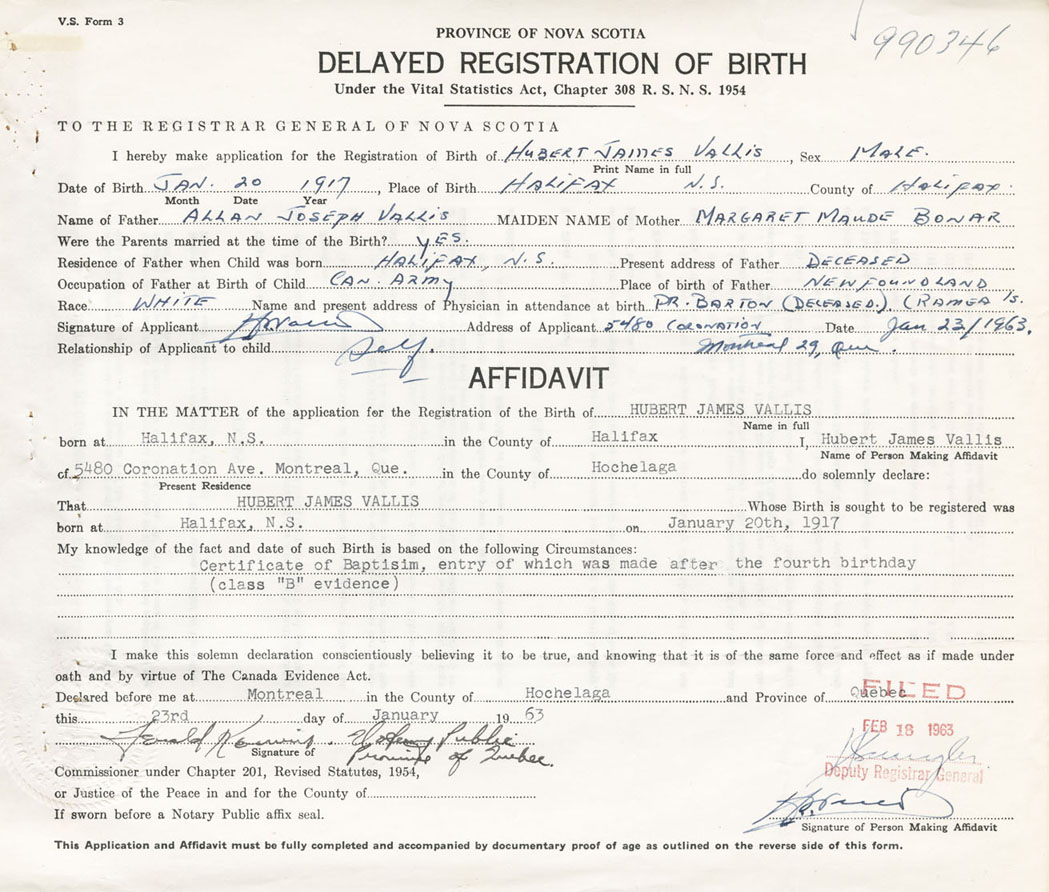 V.S. Form 3
990346
PROVINCE OF NOVA SCOTIA
DELAYED REGISTRATION OF BIRTH
Under the Vital Statistics Act, Chapter 308 R. S. N. S. 1954
TO THE REGISTRAR GENERAL OF NOVA SCOTIA
I hereby make application for the Registration of Birth of HUBERT JAMES VALLIS, Sex MALE.
Print Name in full
Date of Birth JAN. 20 1917, Place of Birth HALIFAX N.S. County of HALIFAX.
Month Date Year
Name of Father ALLAN JOSEPH VALLIS MAIDEN NAME of Mother MARGARET MAUDE BONAR
Were the Parents married at the time of the Birth? YES.
Residence of Father when Child was born HALIFAX, N.S. Present address of Father DECEASED
Occupation of Father at Birth of Child CAN. ARMY Place of birth of Father NEWFOUNDLAND
Race WHITE Name and present address of Physician in attendance at birth DR. BARTON (DECEASED.) (RAMEA Is.
Signature of Applicant Address of Applicant 5480 CORONATION Date Jan 23/1963.
Relationship of Applicant to child Self. Montreal 29, Que.
AFFIDAVIT
IN THE MATTER of the application for the Registration of the Birth of HUBERT JAMES VALLIS
Name in full
born at Halifax, N.S. in the County of Halifax I, Hubert James Vallis
Name of Person Making Affidavit
of 5480 Coronation Ave. Montreal, Que. in the County of Hochelaga do solemnly declare:
Present Residence
That HUBERT JAMES VALLIS Whose Birth is sought to be registered was
born at Halifax, N.S. on January 20th, 1917
My knowledge of the fact and date of such Birth is based on the following Circumstances:
Certificate of Baptisim, entry of which was made after the fourth birthday
(class "B" evidence)
I make this solemn declaration conscientiously believing it to be true, and knowing that it is of the same force and effect as if made under
oath and by virtue of The Canada Evidence Act.
Declared before me at Montreal in the County of Hochelaga and Province of Quebec
FILED
this 23rd day of January 1963
FEB 18 1963
Gerald Notary Public
Signature of Province of Quebec.
Deputy Registrar General
Commissioner under Chapter 201, Revised Statutes, 1954,
or Justice of the Peace in and for the County of
If sworn before a Notary Public affix seal.
Signature of Person Making Affidavit
This Application and Affidavit must be fully completed and accompanied by documentary proof of age as outlined on the reverse side of this form.